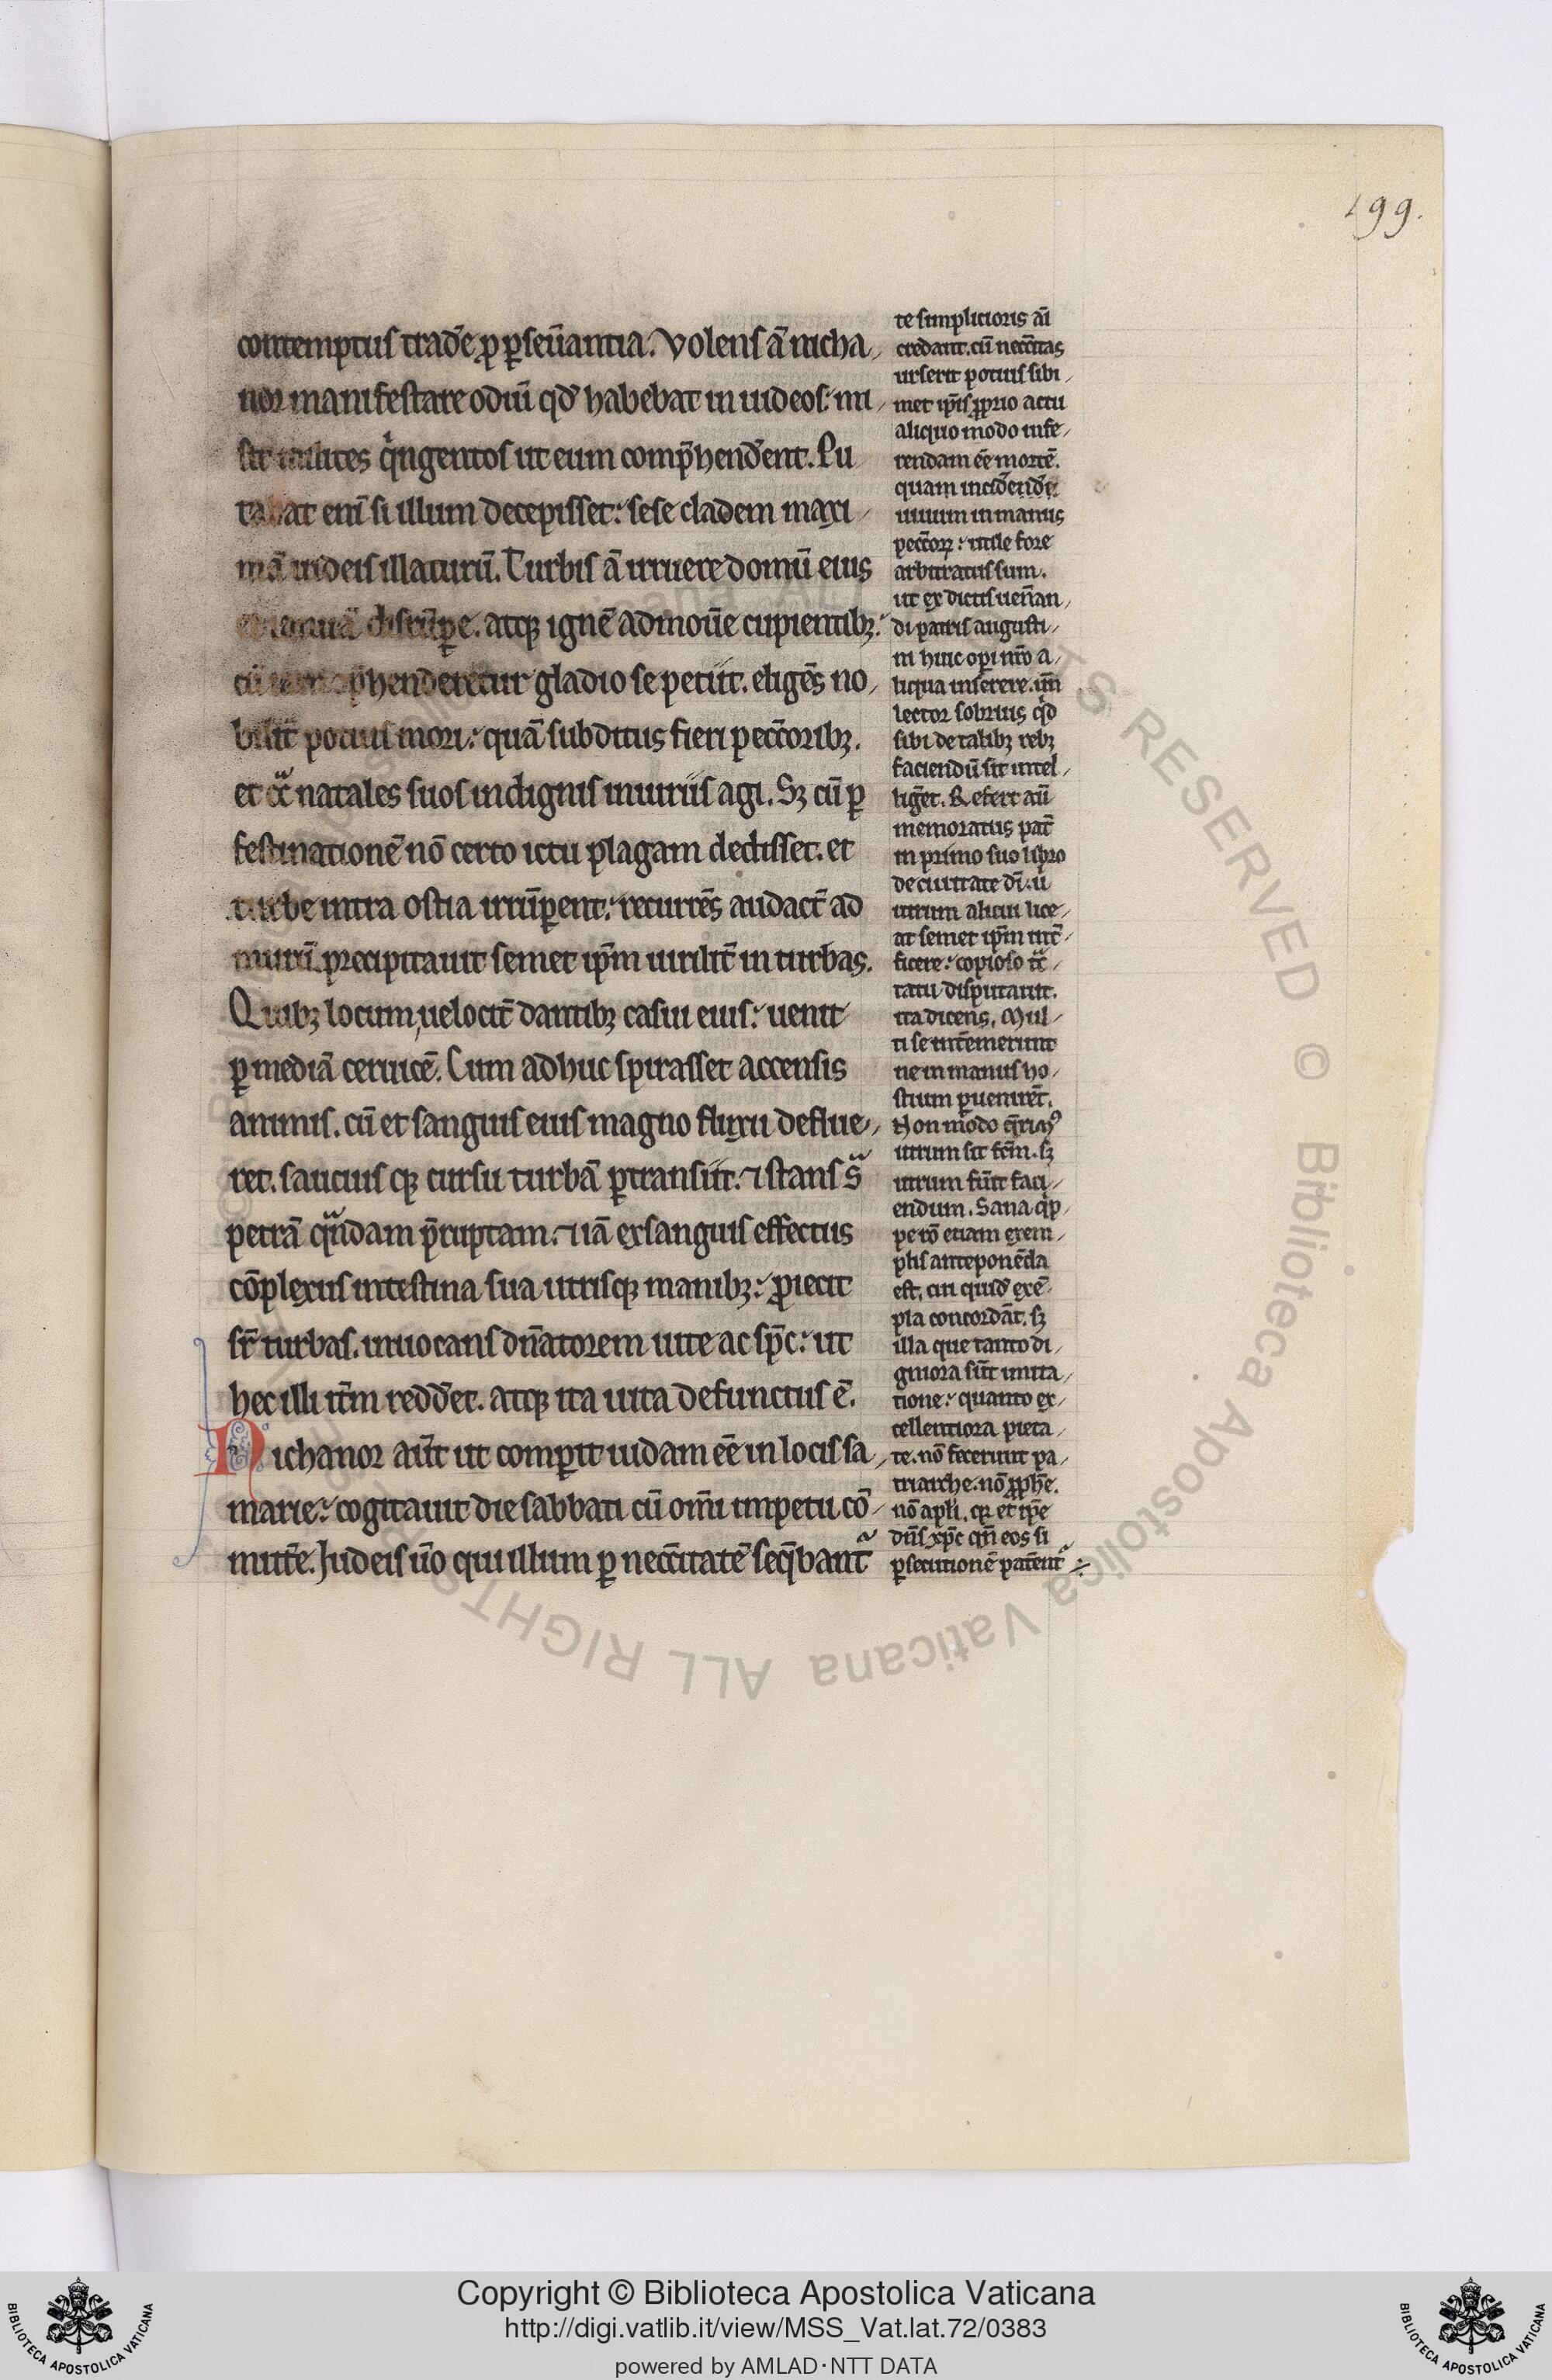 199.
contemptus trad̄e ꝑ ꝑseūantia. Volens ā nicha
nor manifestare odiū qđ habebat in iudeos: mi
sit milites qͥngentos ut eum comp̄hend̄ent. Pu
tabat eni̅ si illum decepisset: sese cladem maxi
mā iudeis illaturū. Turbis ā irruere domū eius
discu̅pe. atqꝫ ignē admoūe cupientibꝫ:
hender̅etur gladio se petiit. eligēs no
bilit̄ potius mori: quā subditus fieri pecc̄oribꝫ.
et cͣ natales suos indignis iniuriis agi. Sꝫ cū ꝑ
festinationē nō certo ictu plagam dedisset. et
turbe intra ostia irrūpent: recurrēs audact̄ ad
murū precipitauit semet ip̄m uirilit̄ in turbas.
Quibꝫ locum uelocit̄ dantibꝫ casui eius: uenit
ꝑ mediā ceruicē. Cum adhuc spirasset accensis
animis. cū et sanguis eius magno fluxu deflue
ret. saucius qꝫ cursu turbā ꝑtransiit. ⁊ stans sͣ
petrā qͣndam p̄ruptam. ⁊ iā exsanguis effectus
cōplexus intestina sua utrisqꝫ manibꝫ: ꝓiecit
sr̄ turbas. inuocans dn̄atorem uite ac sp̄c: ut
hec illi it̄m redd̄et. atqꝫ ita uita defunctus ē.
Nichanor aūt ut comꝑit iudam eē in locis sa
marie: cogitauit die sabbati cū om̄i impetu cō
mitt̄e. Judeis ūo qui illum ꝑ necc̄itatē seqb̄ant̃
te simplicioris ai̅
credant. cū necc̄itas
urserit potius sibi
met ip̄is ꝓprio actu
aliquo modo infe
rendam eē mortē.
quam incid̄end̄e
uiuum in manus
pecc̄oꝝ: utile fore
arbitratus sum.
ut ex dictis uen̄an
di patris augusti
ni huic operi nr̄o a
liqua inserere. un̄
lector sobrius qͥd
sibi de talibꝫ rebꝫ
faciendū sit intel
lig̅et. Refert aū
memoratus pat̄
in primo suo libro
de ciuitate di̅. u
utrum alicui lice
at semet ip̄m int̄
ficere: copioso tͣc
tatu disputauit.
ita dicens. Mul
ti se int̄emerunt
ne in manus ho
stium ꝑuenirēt.
Non modo q̄rimꝰ
utrum sit fc̄m. sꝫ
utrum fūit faci
endum. Sana qͥp
pe rō etiam exem
plis anteponēda
est. cui quid̄ exē
pla concordāt. sꝫ
illa que tanto di
gniora sūt imita
tione: quanto ex
cellentiora pieta
te. nō fecerunt pa
triarche. nō ꝓph̄e.
nō apl̄i. qꝛ et ip̄e
dn̄s xp̄c qn̄ eos si
ꝑsecutionē pat̄ent̃
Copyright © Biblioteca Apostolica Vaticana
http://digi.vatlib.it/view/MSS_Vat.lat.72/0383
powered by AMLAD·NTT DATA